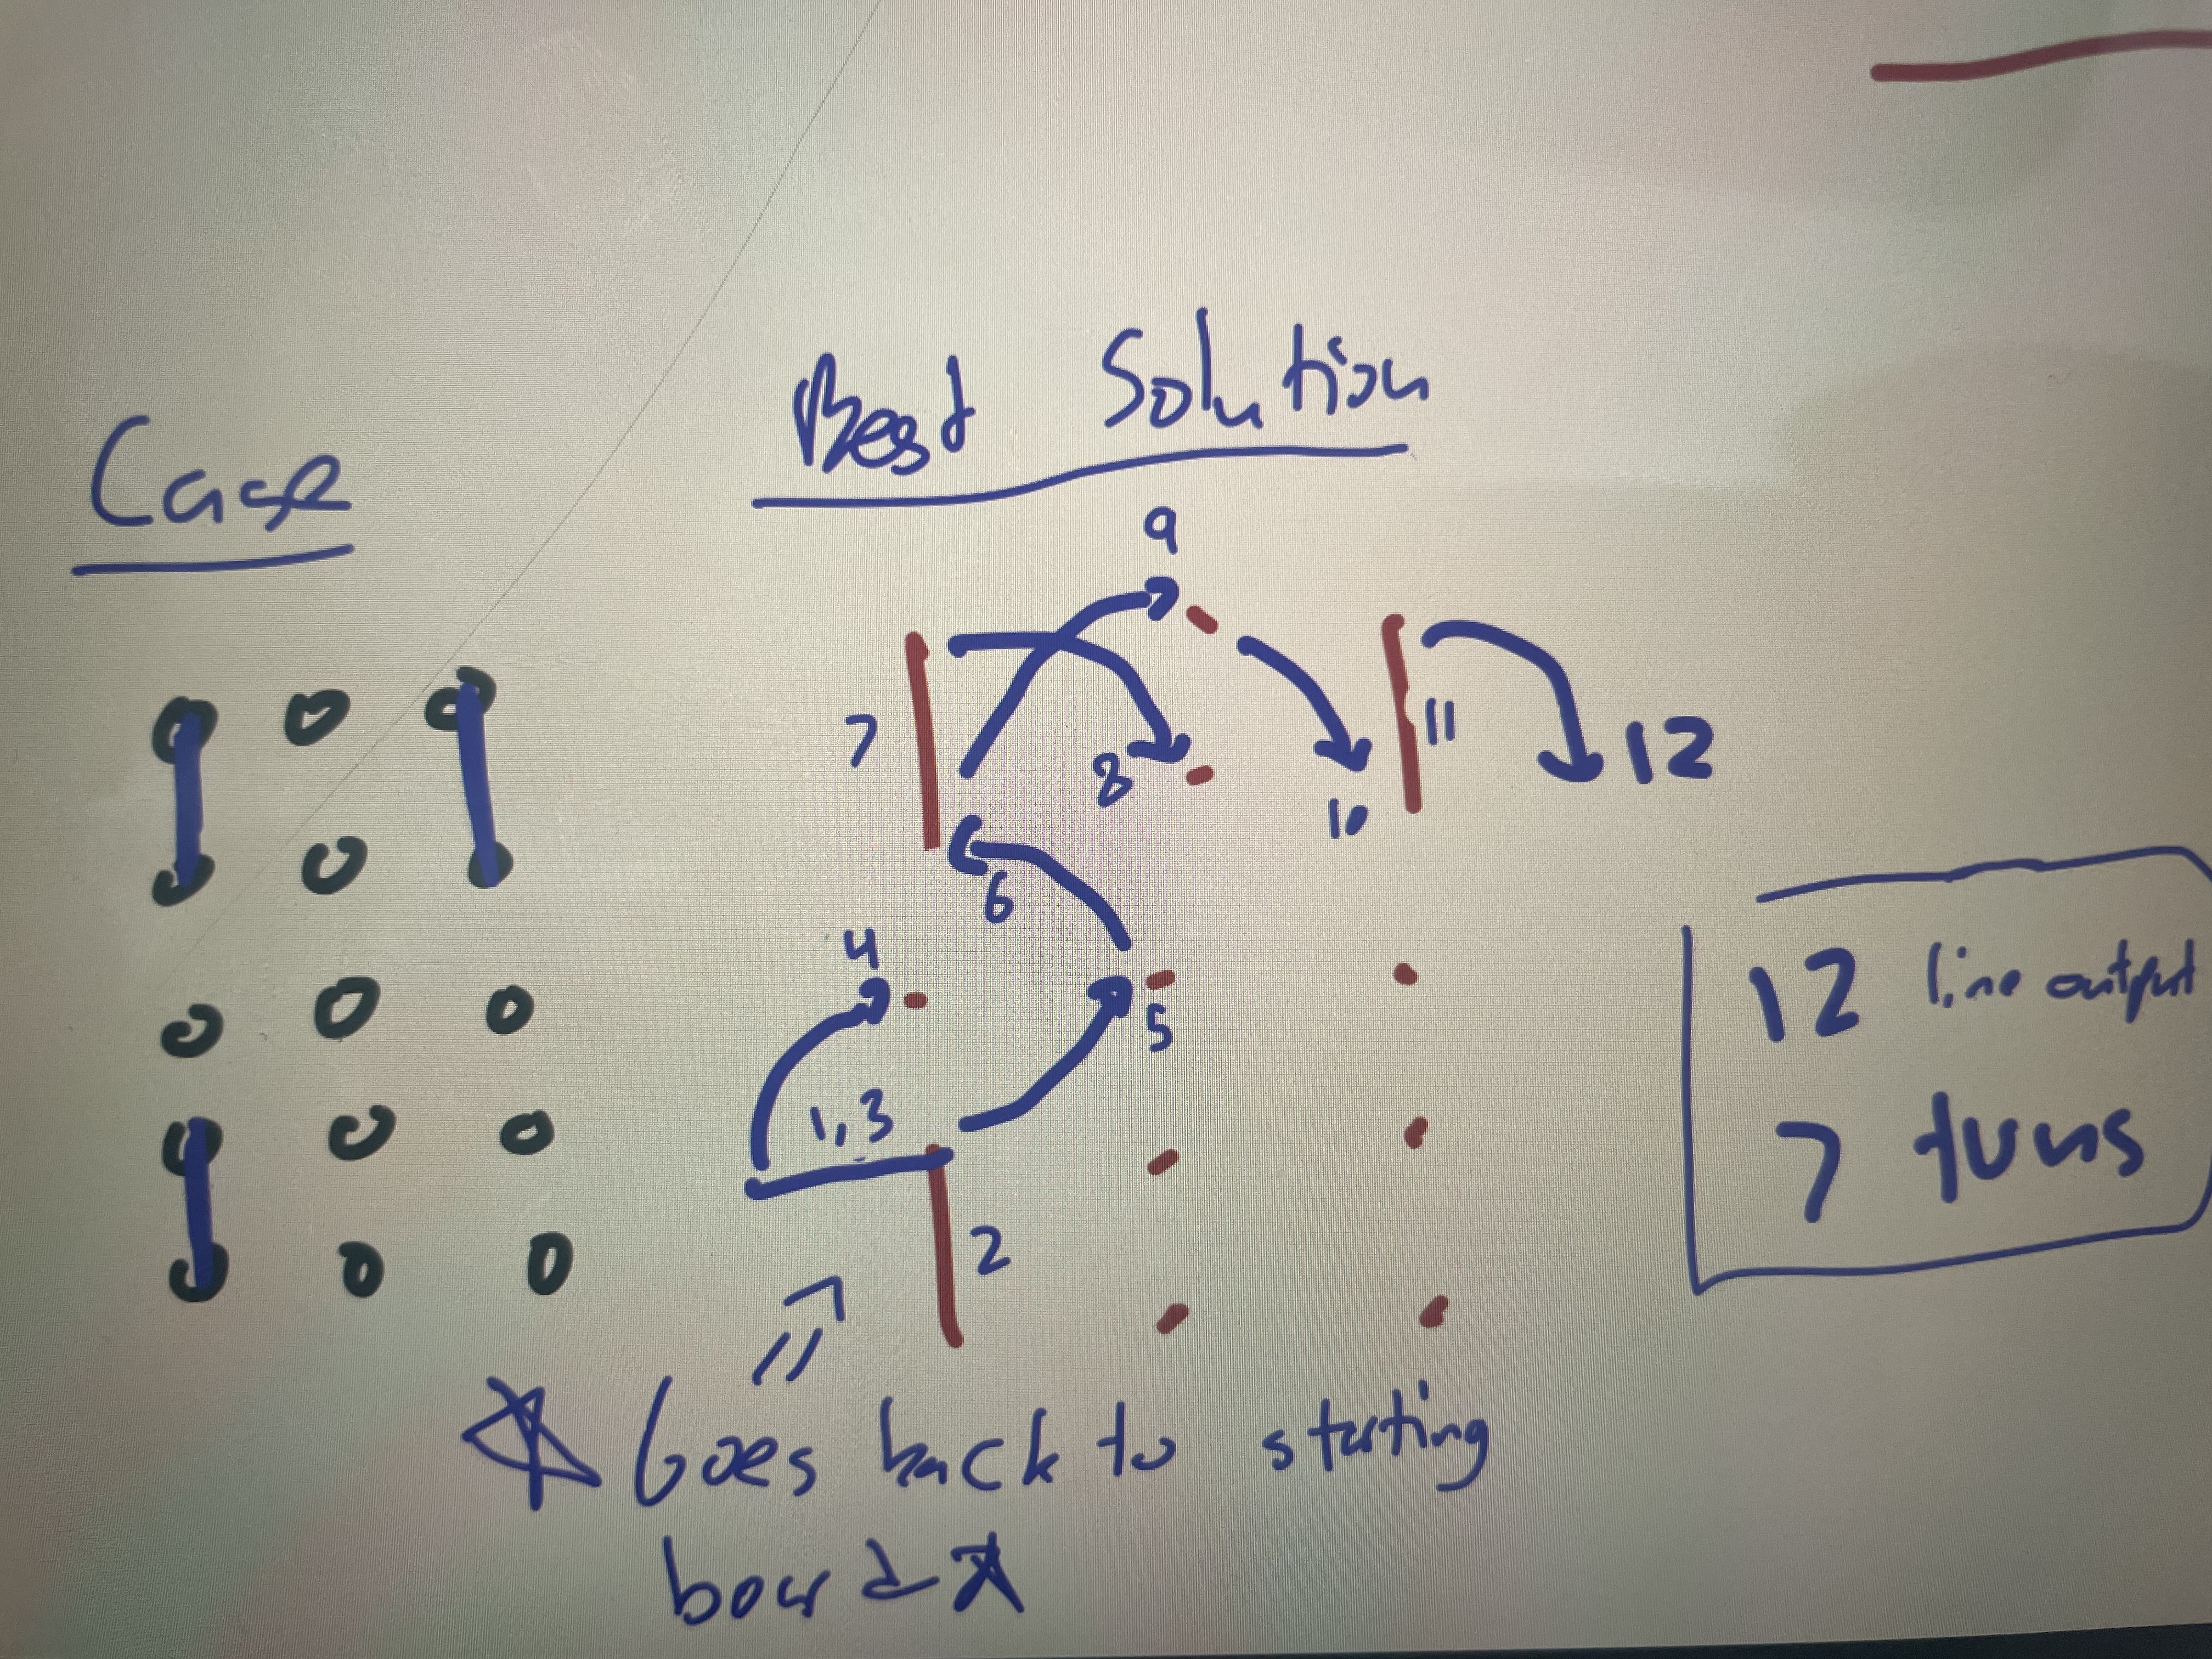 Case
Best Solution
9
7
8
11
12
10
6
4
5
1,3
2
12 line output
7 turns
Goes back to starting
board